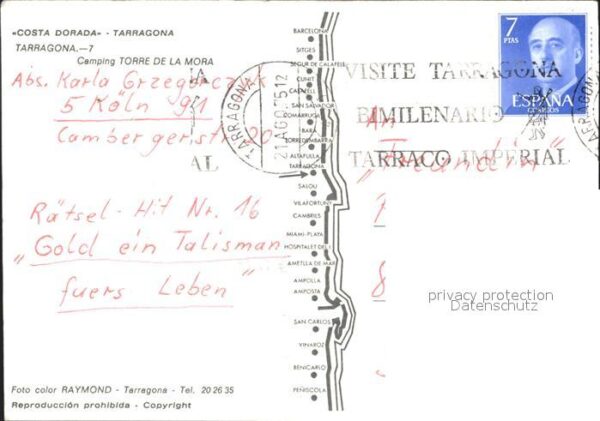 «COSTA DORADA» - TARRAGONA
TARRAGONA.—7
Camping TORRE DE LA MORA
Abs. Karla Grzegorczyk
5 Köln 91
Cambergerstr. 20
AL
Rätsel-Hit Nr. 16
„Gold ein Talisman
fuers Leben"
Foto color RAYMOND - Tarragona - Tel. 20 26 35
Reproducción prohibida - Copyright
BARCELONA
SITGES
SEGUR DE CALAFELL
CUNIT
CALAFELL
SAN SALVADOR
COMARRUGA
BARA
TORREDEMBARRA
ALTAFULLA
TARRAGONA
SALOU
VILAFORTUNY
CAMBRILS
MIAMI-PLAYA
HOSPITALET DEL I.
AMETLLA DE MAR
AMPOLLA
AMPOSTA
SAN CARLOS
VINAROZ
BENICARLO
PEÑISCOLA
TARRAGONA
21 AGO 75 12
VISITE TARRAGONA
BIMILENARIO
TARRACO IMPERIAL
7
PTAS
ESPAÑA
CORREOS
TARRAGONA
An
„Freundin"
8
privacy protection
Datenschutz